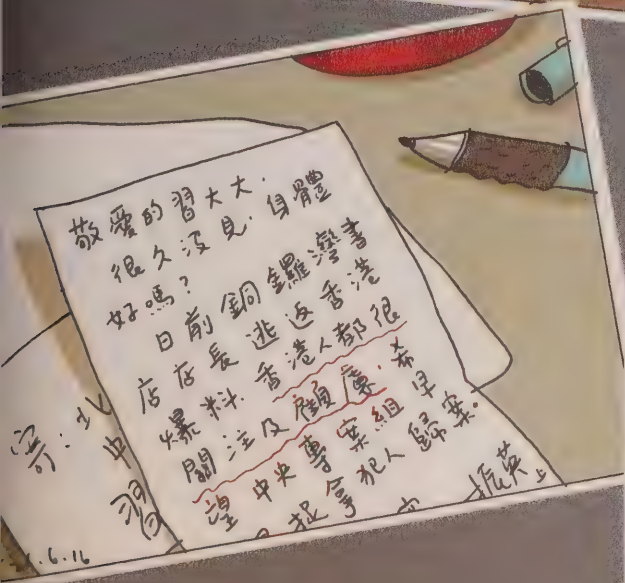 敬愛的習大大.
很久沒見. 身體
好嗎?
日前銅鑼灣書
店店長逃返香港
爆料. 香港人都很
關注及顧慮. 希
望中央專案組早
日捉拿犯人歸案.
振英上
寄:北
中
習
.6.16